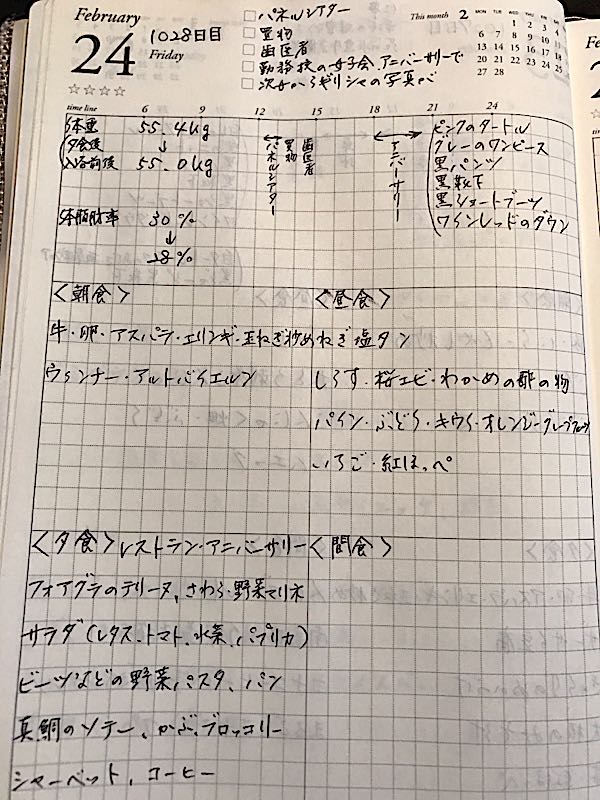 February
24
1028日目
Friday
☆☆☆☆
□ パネルシアター
□ 買物
□ 歯医者
□ 勤務校の女子会 アニバーサリーで
□ 次女からギリシャの写真が
This month 2
MON TUE WED THU FRI SAT SUN
1 2 3 4 5
6 7 8 9 10 11 12
13 14 15 16 17 18 19
20 21 22 23 24 25 26
27 28
time line 6 9 12 15 18 21 24
体重 55.4kg
夕食後 ↓
入浴前後 55.0kg
体脂肪率 30%
↓
28%
パネルシアター
買物
歯医者
アニバーサリー
ピンクのタートル
グレーのワンピース
黒パンツ
黒靴下
黒ショートブーツ
ワインレッドのダウン
<朝食>
牛・卵・アスパラ・エリンギ・玉ねぎ炒め
ウィンナー・アルトバイエルン
<昼食>
ねぎ塩タン
しらす・桜エビ・わかめの酢の物
パイン・ぶどう・キウイ・オレンジ・グレープフルーツ
いちご・紅ほっぺ
<夕食> レストラン・アニバーサリー
フォアグラのテリーヌ、さわら・野菜マリネ
サラダ(レタス、トマト、水菜、パプリカ)
ビーツなどの野菜、パスタ、パン
真鯛のソテー、かぶ、ブロッコリー
シャーベット、コーヒー
<間食>